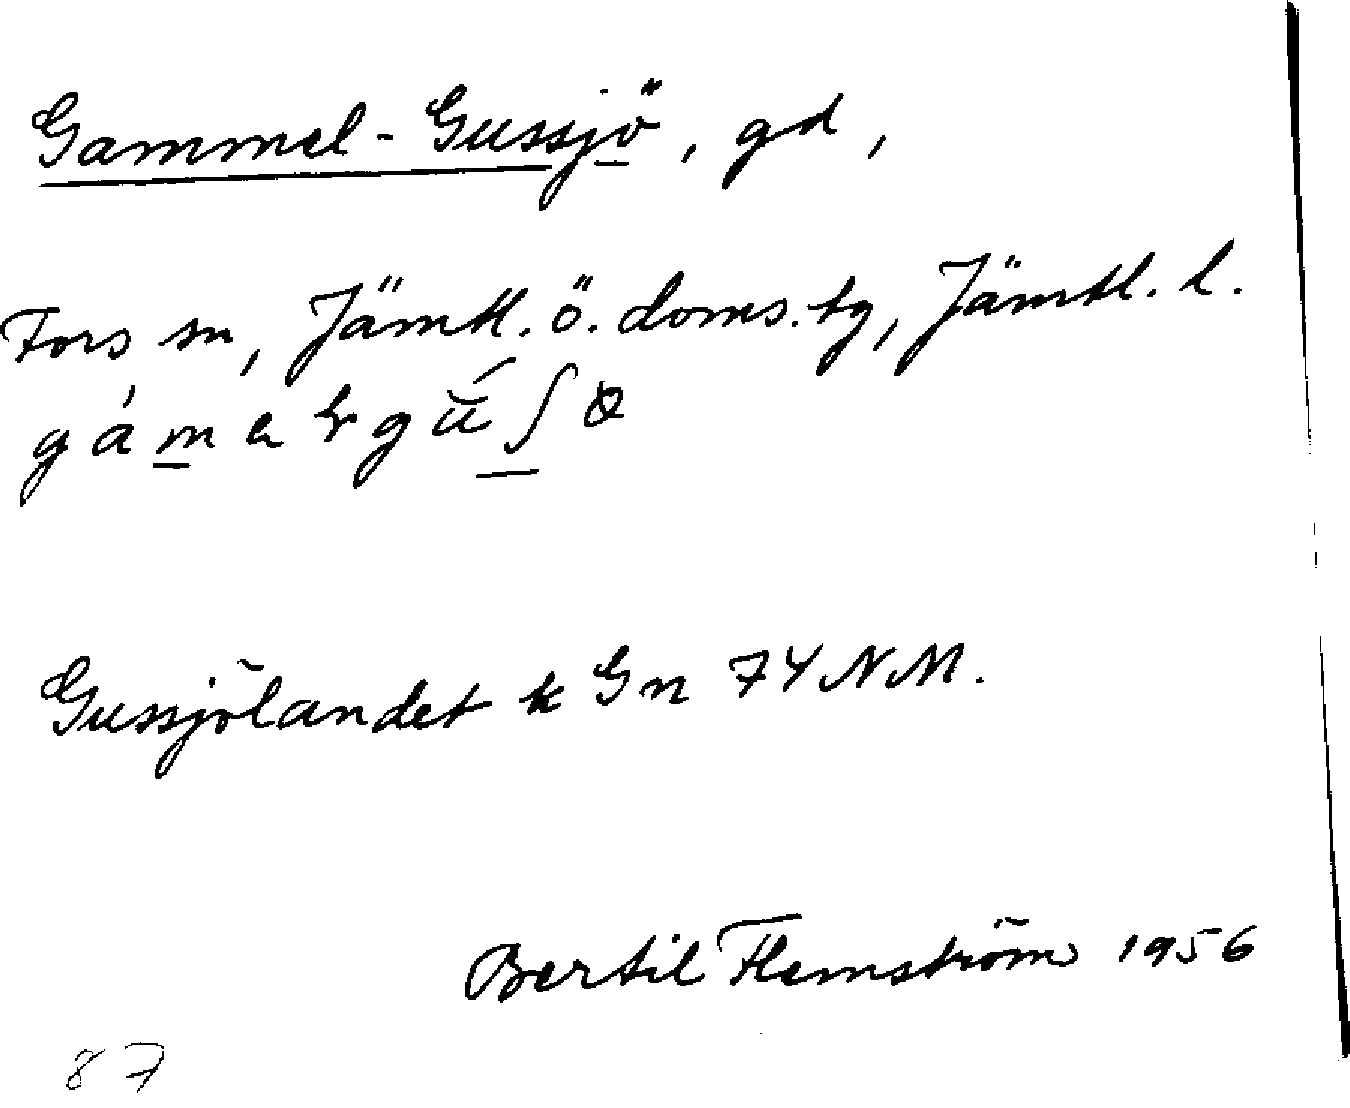 Gammel-Gussjö, gd,
Fors sn, Jämtl. ö. doms. tg, Jämtl. l.
Gussjölandet k Gn 74 NM.
Bertil Flemström 1956
87